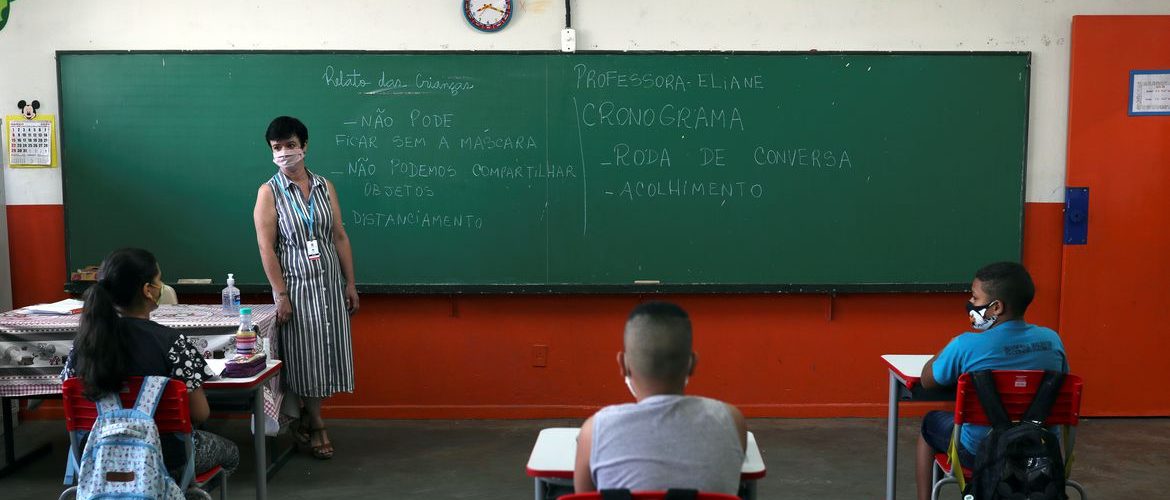 Relato das Crianças
- NÃO PODE
FICAR SEM A MÁSCARA
- NÃO PODEMOS COMPARTILHAR
OBJETOS
- DISTANCIAMENTO
PROFESSORA - ELIANE
CRONOGRAMA
- RODA DE CONVERSA
- ACOLHIMENTO